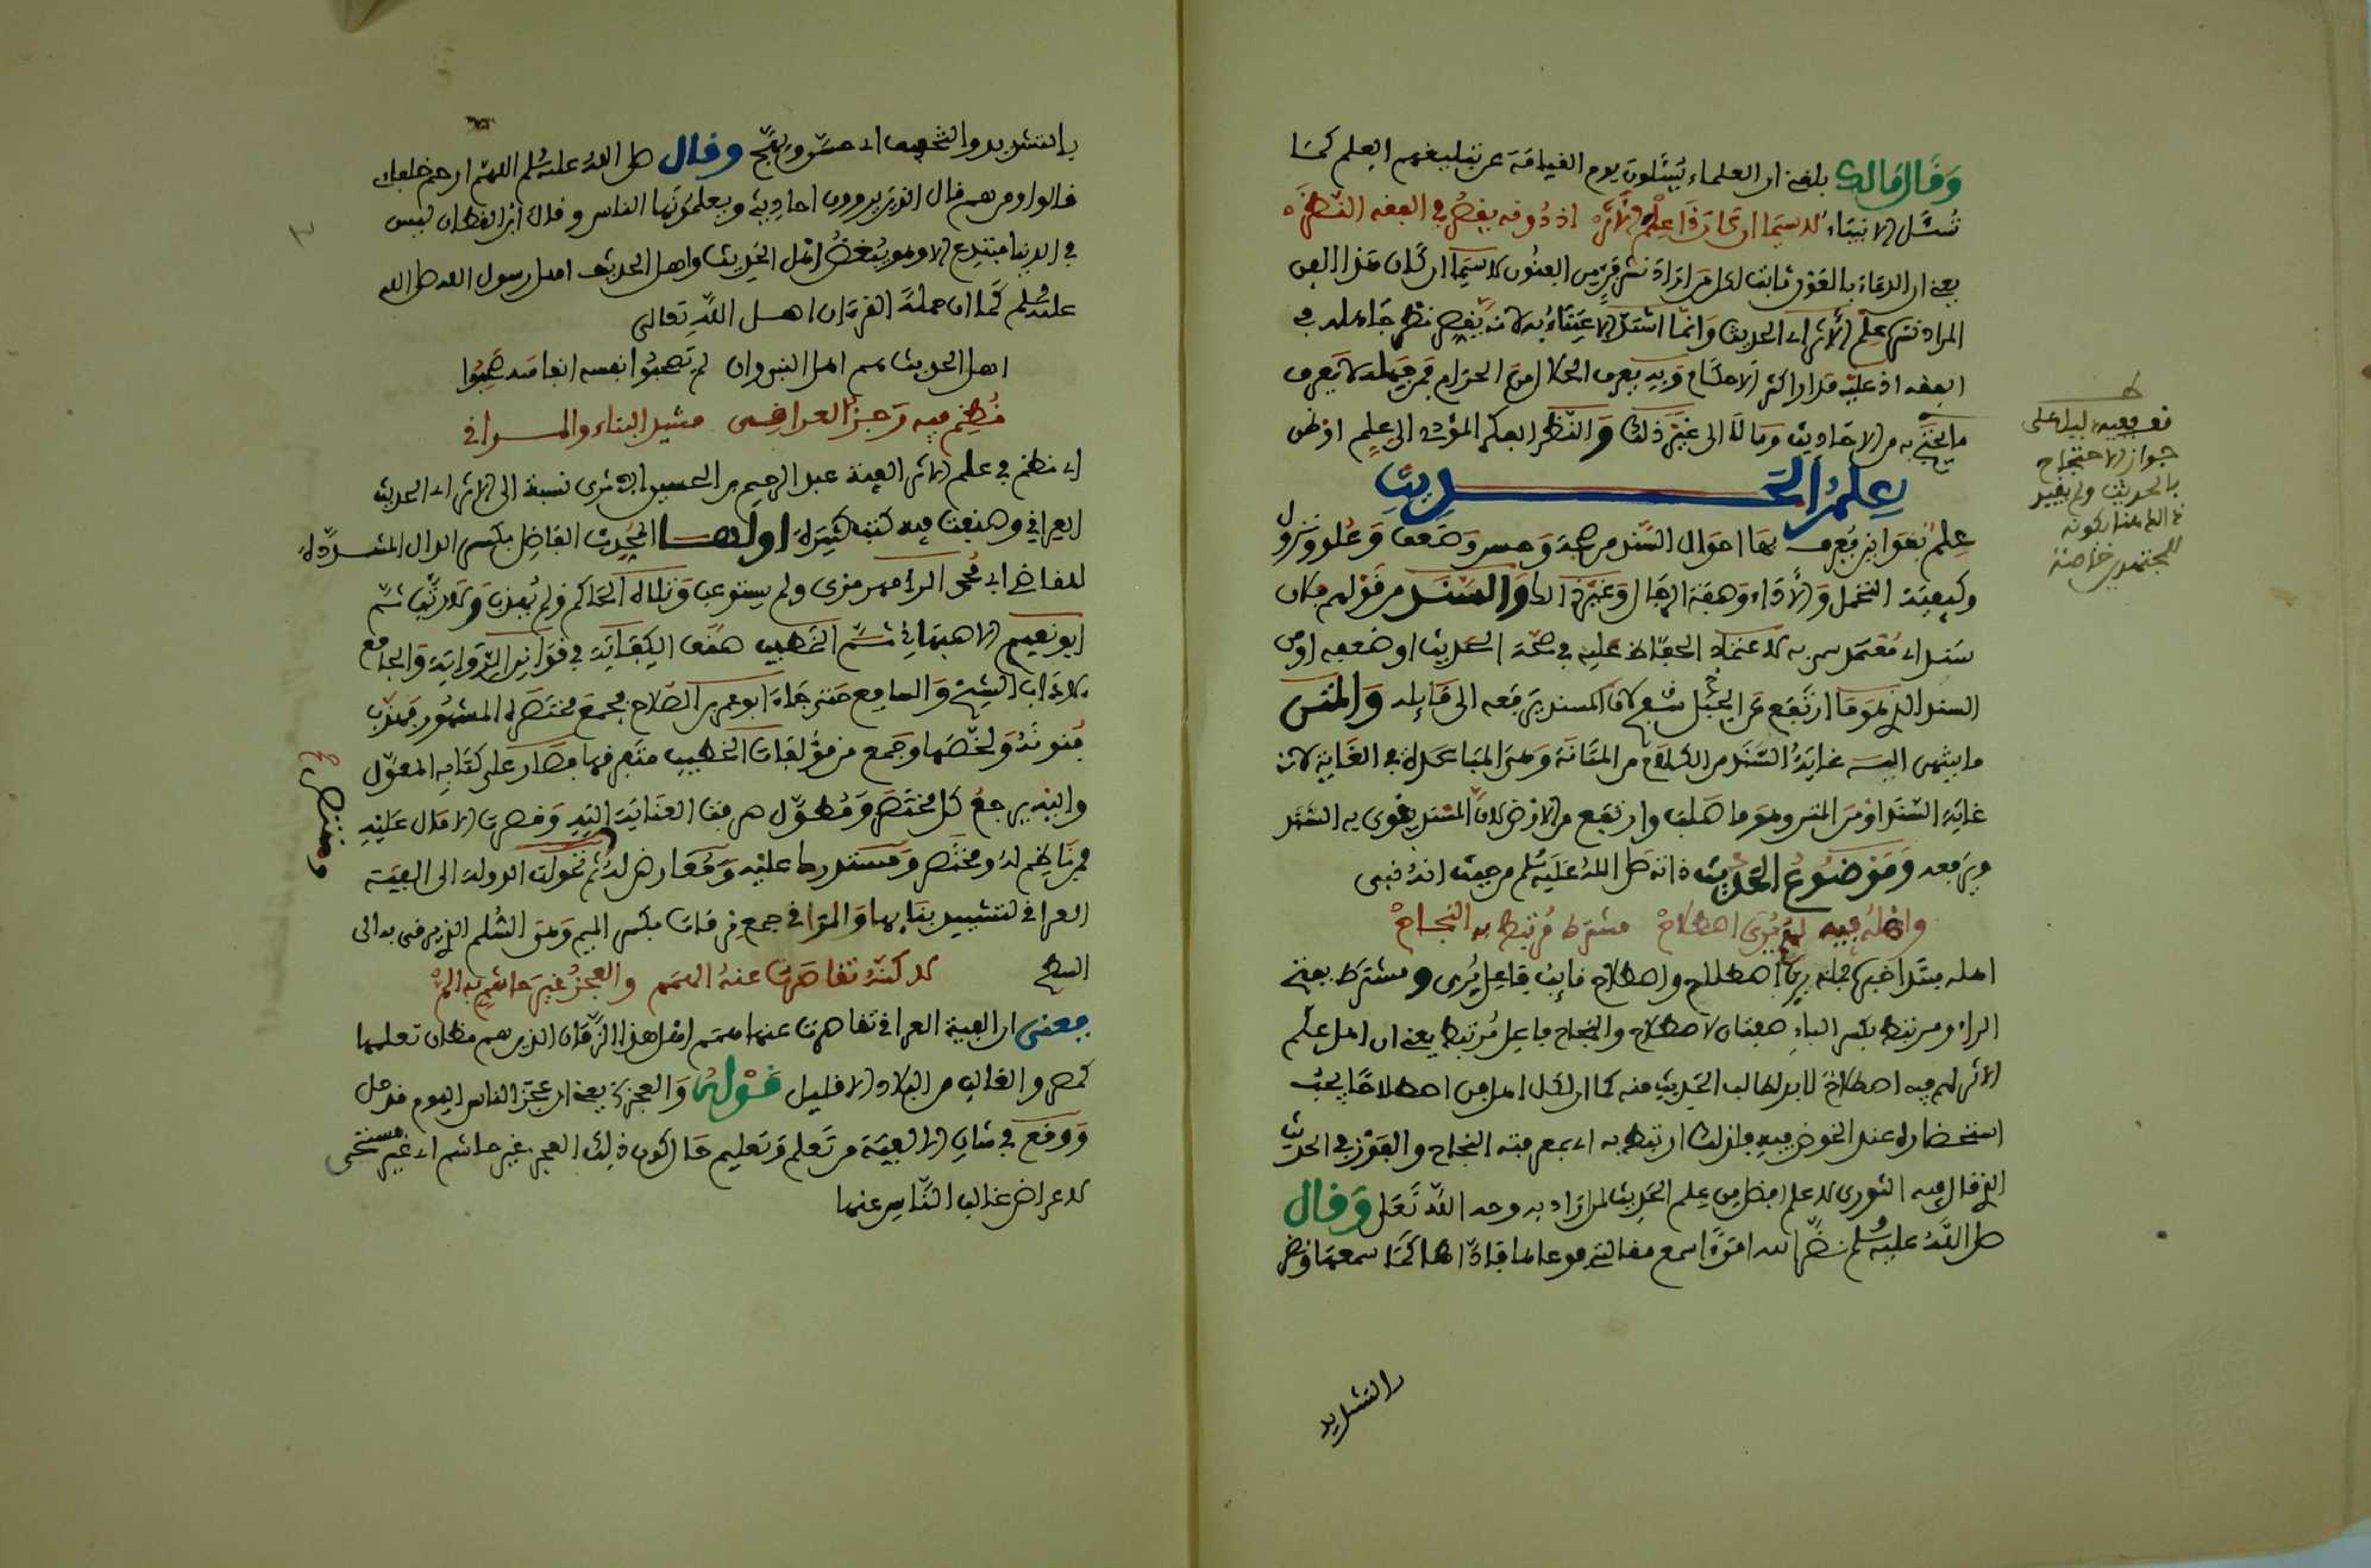 وقال مالك بلغني ان العلماء يُسْئَلون يوم القيامة عن تبليغهم العلم كما
تُسْئَل الانبياء لاسيما ان كان ذا علم الأثر اذ ذو فه يقص في الفقه النظر
يعني ان الدعاء بالفوز ثابت لكل من اراد نشر فن من الفنون لاسيما ان كان هذا الفن
المراد نشره علم الأثر اي الحديث وانما اشتد الاعتناء به لانه ينقص نظر جاهله في
الفقه اذ عليه مدار اكثر الاحكام وبه يعرف الحلال من الحرام فمن جهله لا يعرف
ما يحتج به من الاحاديث وماله الى غير ذلك والنظر الفكر المؤدي الى علم او ظن
علم الحديث
علم بقوانين يعرف بها احوال السند من صحة وحسن وضعف وعلو ونزول
وكيفية التحمل والأداء وصفة الرجال وغير ذالك والسند من قولهم فلان
سند اي معتمد سمي به لاعتماد الحفاظ عليه في صحة الحديث او ضعفه او من
السند الذي هو ما ارتفع عن الجبل سفح لان المسند يرفعه الى قائله والمتن
ما ينتهي اليه غاية السند من الكلام من المماتنة وهي المباعدة في الغاية لانه
غاية السند او من المتن وهو ما صلب وارتفع من الارض لان المسند يقوي به السند
ويرفعه وموضوع الحديث ذاته صلى الله عليه وسلم من حيث انه نبي
واهله فيه لهم يُرَى اصطلاح مشترط مرتبط به النجاح
اهله مبتدا خبره جملة يرى اصطلاح واصطلاح نايب فاعل يُرى ومشترط بفتح
الراء ومرتبط بكسر الباء صفتان لاصطلاح والنجاح فاعل مرتبط يعني ان اهل علم
الاثر لهم فيه اصطلاح لابد لطالب الحديث منه كما ان لكل اهل فن اصطلاحا يجب
استحضاره عند الخوض فيه فلذلك ارتبط به اي بمعرفته النجاح والفوز في الحديث
الذي قال فيه الثوري لا علم افضل من علم الحديث لمن اراد به وجه الله تعلى وقال
صلى الله عليه وسلم نضر الله امرءًا سمع مقالتي فوعاها فاداها كما سمعها ونضر
بالتشديد
ط
فف ففيه دليل على
جواز الاحتجاج
بالحديث ولم يقيد
ذالك هنا بكونه
للمجتهدين خاصة
بالتشديد والتخفيف اي حسن وبهج وقال صلى الله عليه وسلم اللهم ارحم خلفاءي
قالوا ومن هم قال الذين يروون احاديثي ويعلمونها الناس وقال ابن القطان ليس
في الدنيا مبتدع الا وهو يبغض اهل الحديث واهل الحديث اهل رسول الله صلى الله
عليه وسلم كما ان حملة القرءان اهل الله تعالى
اهل الحديث هم اهل النبي وان لم يصحبوا نفسه انفاسه صحبوا
نُظِم فيه رجز العراقي مشيد البناء والمراقي
اي نظم في علم الاثر الفية عبد الرحيم بن الحسين الاثري نسبة الى الاثر اي الحديث
العراقي وصنفت فيه كتب كثيرة اولها المحدث الفاضل بكسر الدال المشددة
للقاضي ابي محمد الرامهرمزي ولم يستوعب وتلاه الحاكم ولم يهذب ولا رتب ثم
ابو نعيم الاصبهاني ثم الخطيب صنف الكفاية في قوانين الرواية والجامع
لاداب الشيخ والسامع حتى جاء ابو عمر بن الصلاح فجمع مختصره المشهور فهذب
فنونه ولخصها وجمع من مؤلفات الخطيب متفرقها فصار على كتابه المعول
واليه يرجع كل مختصر ومطول صرفت العناية اليه وقصرت الاقدال عليه
فمن ناظم له ومختصر ومستدرك عليه ومعارض له ثم تحولت الدولة الى الفية
ومنتصر صح
العراقي لتشييد بنايها والمراقي جمع مرقات بكسر الميم وهي السُّلم الذي يرقى به الى
السطح لاكنه تقاصرت عنه الهمم والعجز غير حاشم به الم
يعني ان الفية العراقي تقاصرت عنها همم اهل هذا الزمان الذين هم مظان تعلمها
كمصر والغالب من البلاد الا قليل قوله والعجز الخ يعني ان عجز الناس اليوم قد حل
ووقع في شان الالفية من تعلم وتعليم حال كون ذلك العجز غير حاشم اي غير مستحي
لاعراض غالب الناس عنها